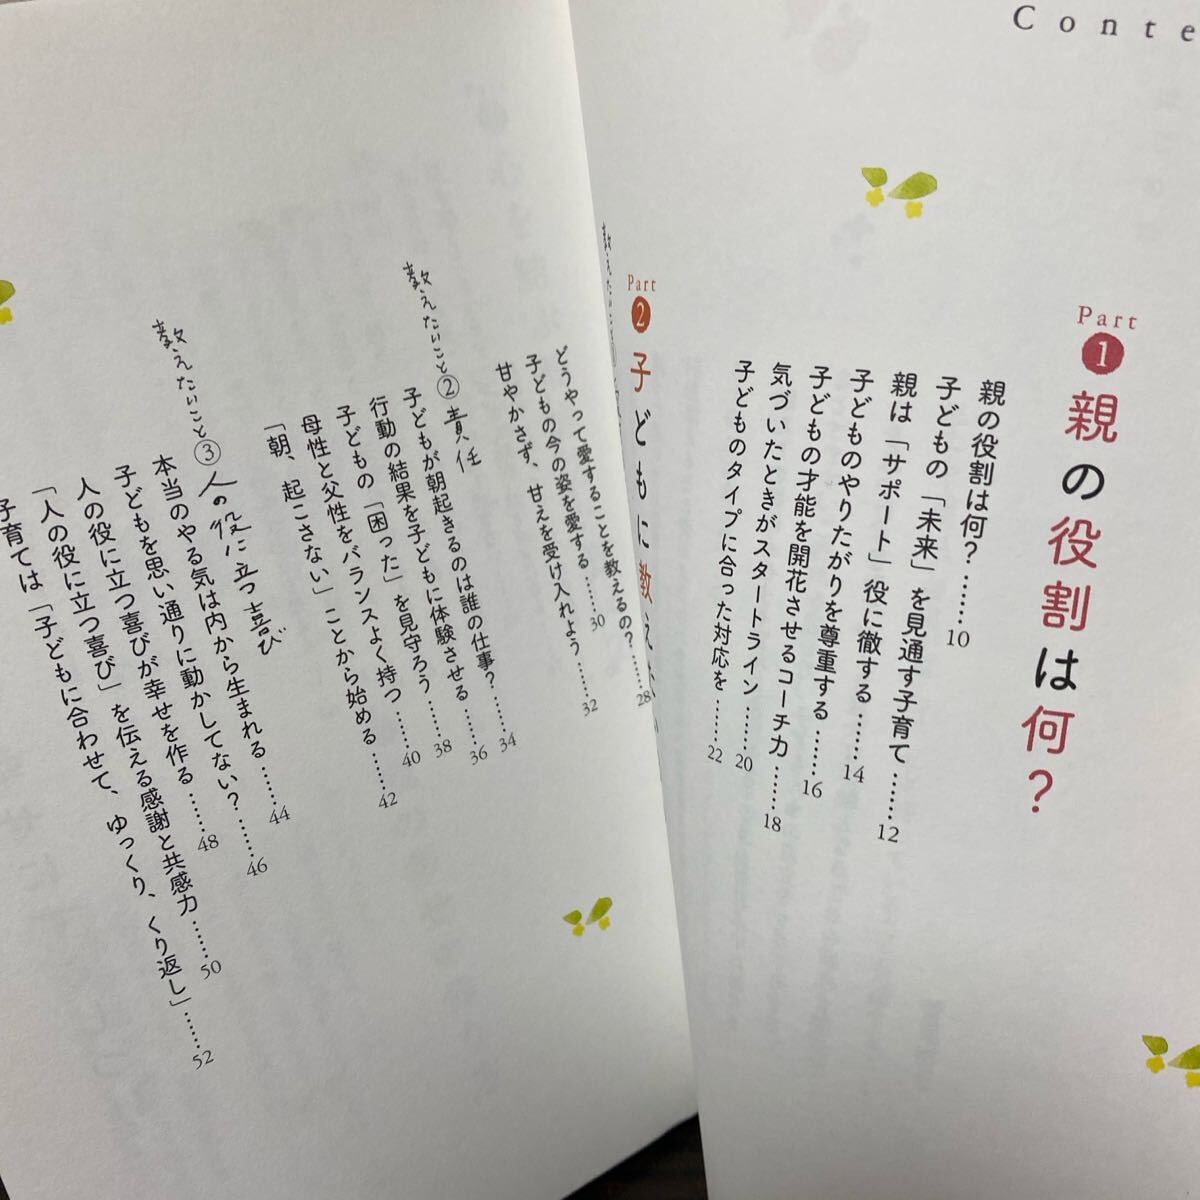 Conte
Part
1
親の役割は何?
親の役割は何?……10
子どもの「未来」を見通す子育て……12
親は「サポート」役に徹する……14
子どものやりたがりを尊重する……16
子どもの才能を開花させるコーチ力……18
気づいたときがスタートライン……20
子どものタイプに合った対応を……22
Part
2
子どもに教え
教えたいこと
どうやって愛することを教えるの?……28
子どもの今の姿を愛する……30
甘やかさず、甘えを受け入れよう……32
教えたいこと②責任
子どもが朝起きるのは誰の仕事?……34
行動の結果を子どもに体験させる……36
子どもの「困った」を見守ろう……38
母性と父性をバランスよく持つ……40
「朝、起こさない」ことから始める……42
教えたいこと③人の役に立つ喜び
本当のやる気は内から生まれる……44
子どもを思い通りに動かしてない?……46
人の役に立つ喜びが幸せを作る……48
「人の役に立つ喜び」を伝える感謝と共感力……50
子育ては「子どもに合わせて、ゆっくり、くり返し」……52